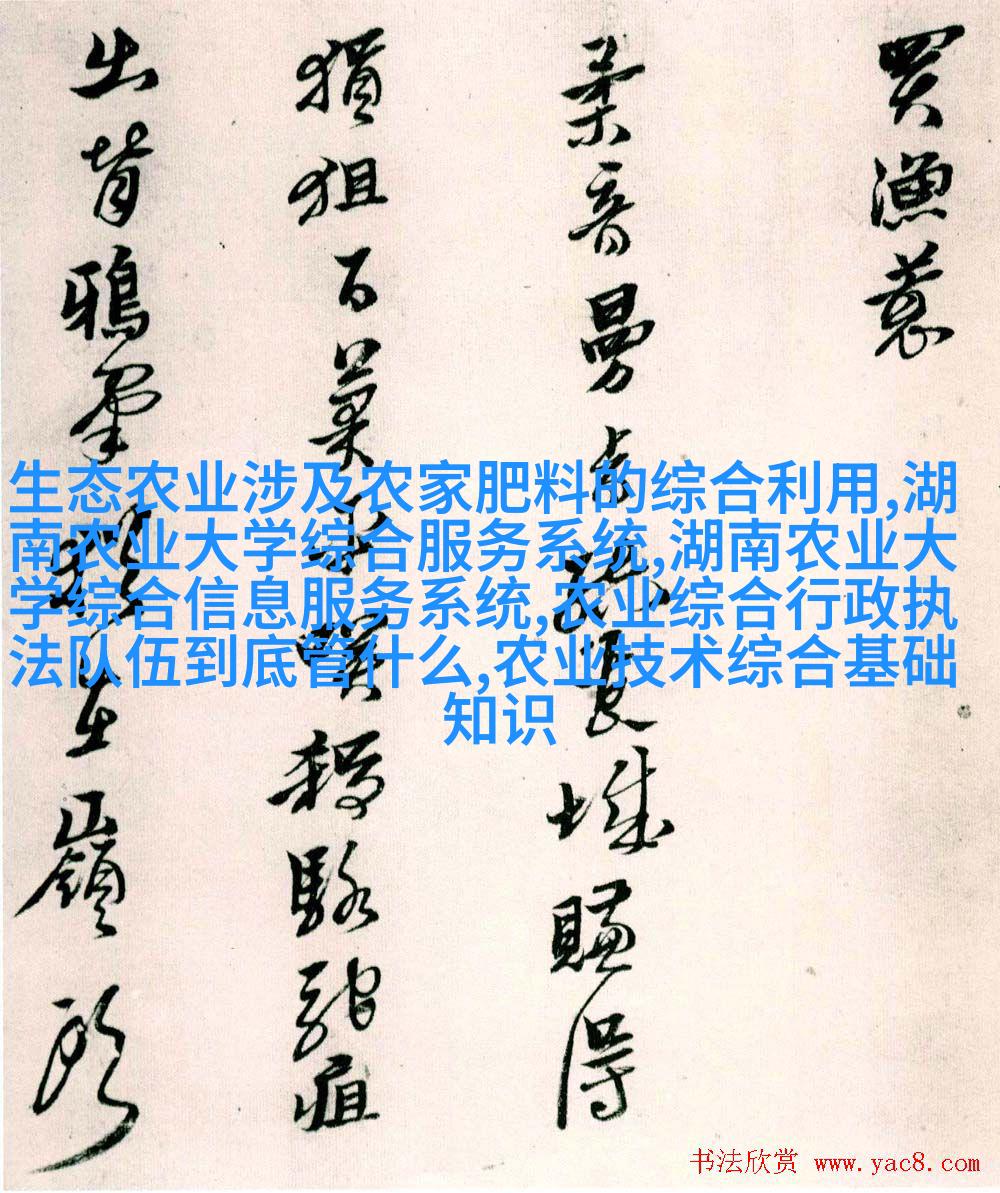 買漁蓑
柔音曼城賺得
狙百駱駝疽
出背鴉在嶺頭
生态农业涉及农家肥料的综合利用,湖
南农业大学综合服务系统,湖南农业大
学综合信息服务系统,农业综合行政执
法队伍到底管什么,农业技术综合基础
知识
书法欣赏 www.yac8.com